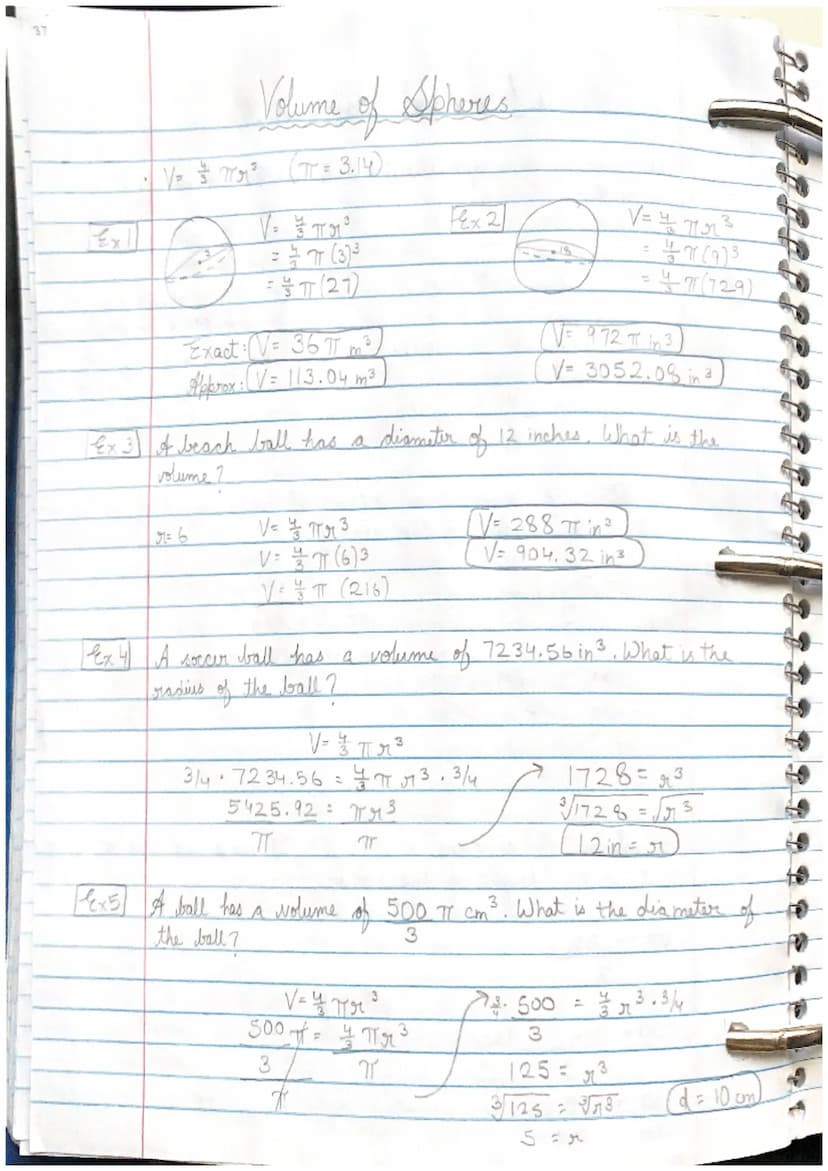 37
Volume of Spheres
. V= 4/3 πr³ (π = 3.14)
Ex 1
3
V= 4/3 πr³
= 4/3 π (3)³
= 4/3 π (27)
Exact: V= 36 π m³
Approx: V= 113.04 m³
Ex 2
18
V= 4/3 πr³
= 4/3 π(9)³
= 4/3 π(729)
V= 972 π in³
V= 3052.08 in³
Ex 3 A beach ball has a diameter of 12 inches. What is the
volume?
r= 6
V= 4/3 πr³
V= 4/3 π (6)³
V= 4/3 π (216)
V= 288 π in³
V= 904.32 in³
Ex 4 A soccer ball has a volume of 7234.56 in³. What is the
radius of the ball?
V= 4/3 πr³
3/4 · 7234.56 = 4/3 π r³ · 3/4
5425.92 = πr³
π π
1728 = r³
³√1728 = √r³
12 in = r
Ex5 A ball has a volume of 500/3 π cm³. What is the diameter of
the ball?
V= 4/3 πr³
500 π = 4/3 πr³
3 π
π
3/4 · 500/3 = 4/3 r³ · 3/4
125 = r³
³√125 = ³√r³
5 = r
d = 10 cm